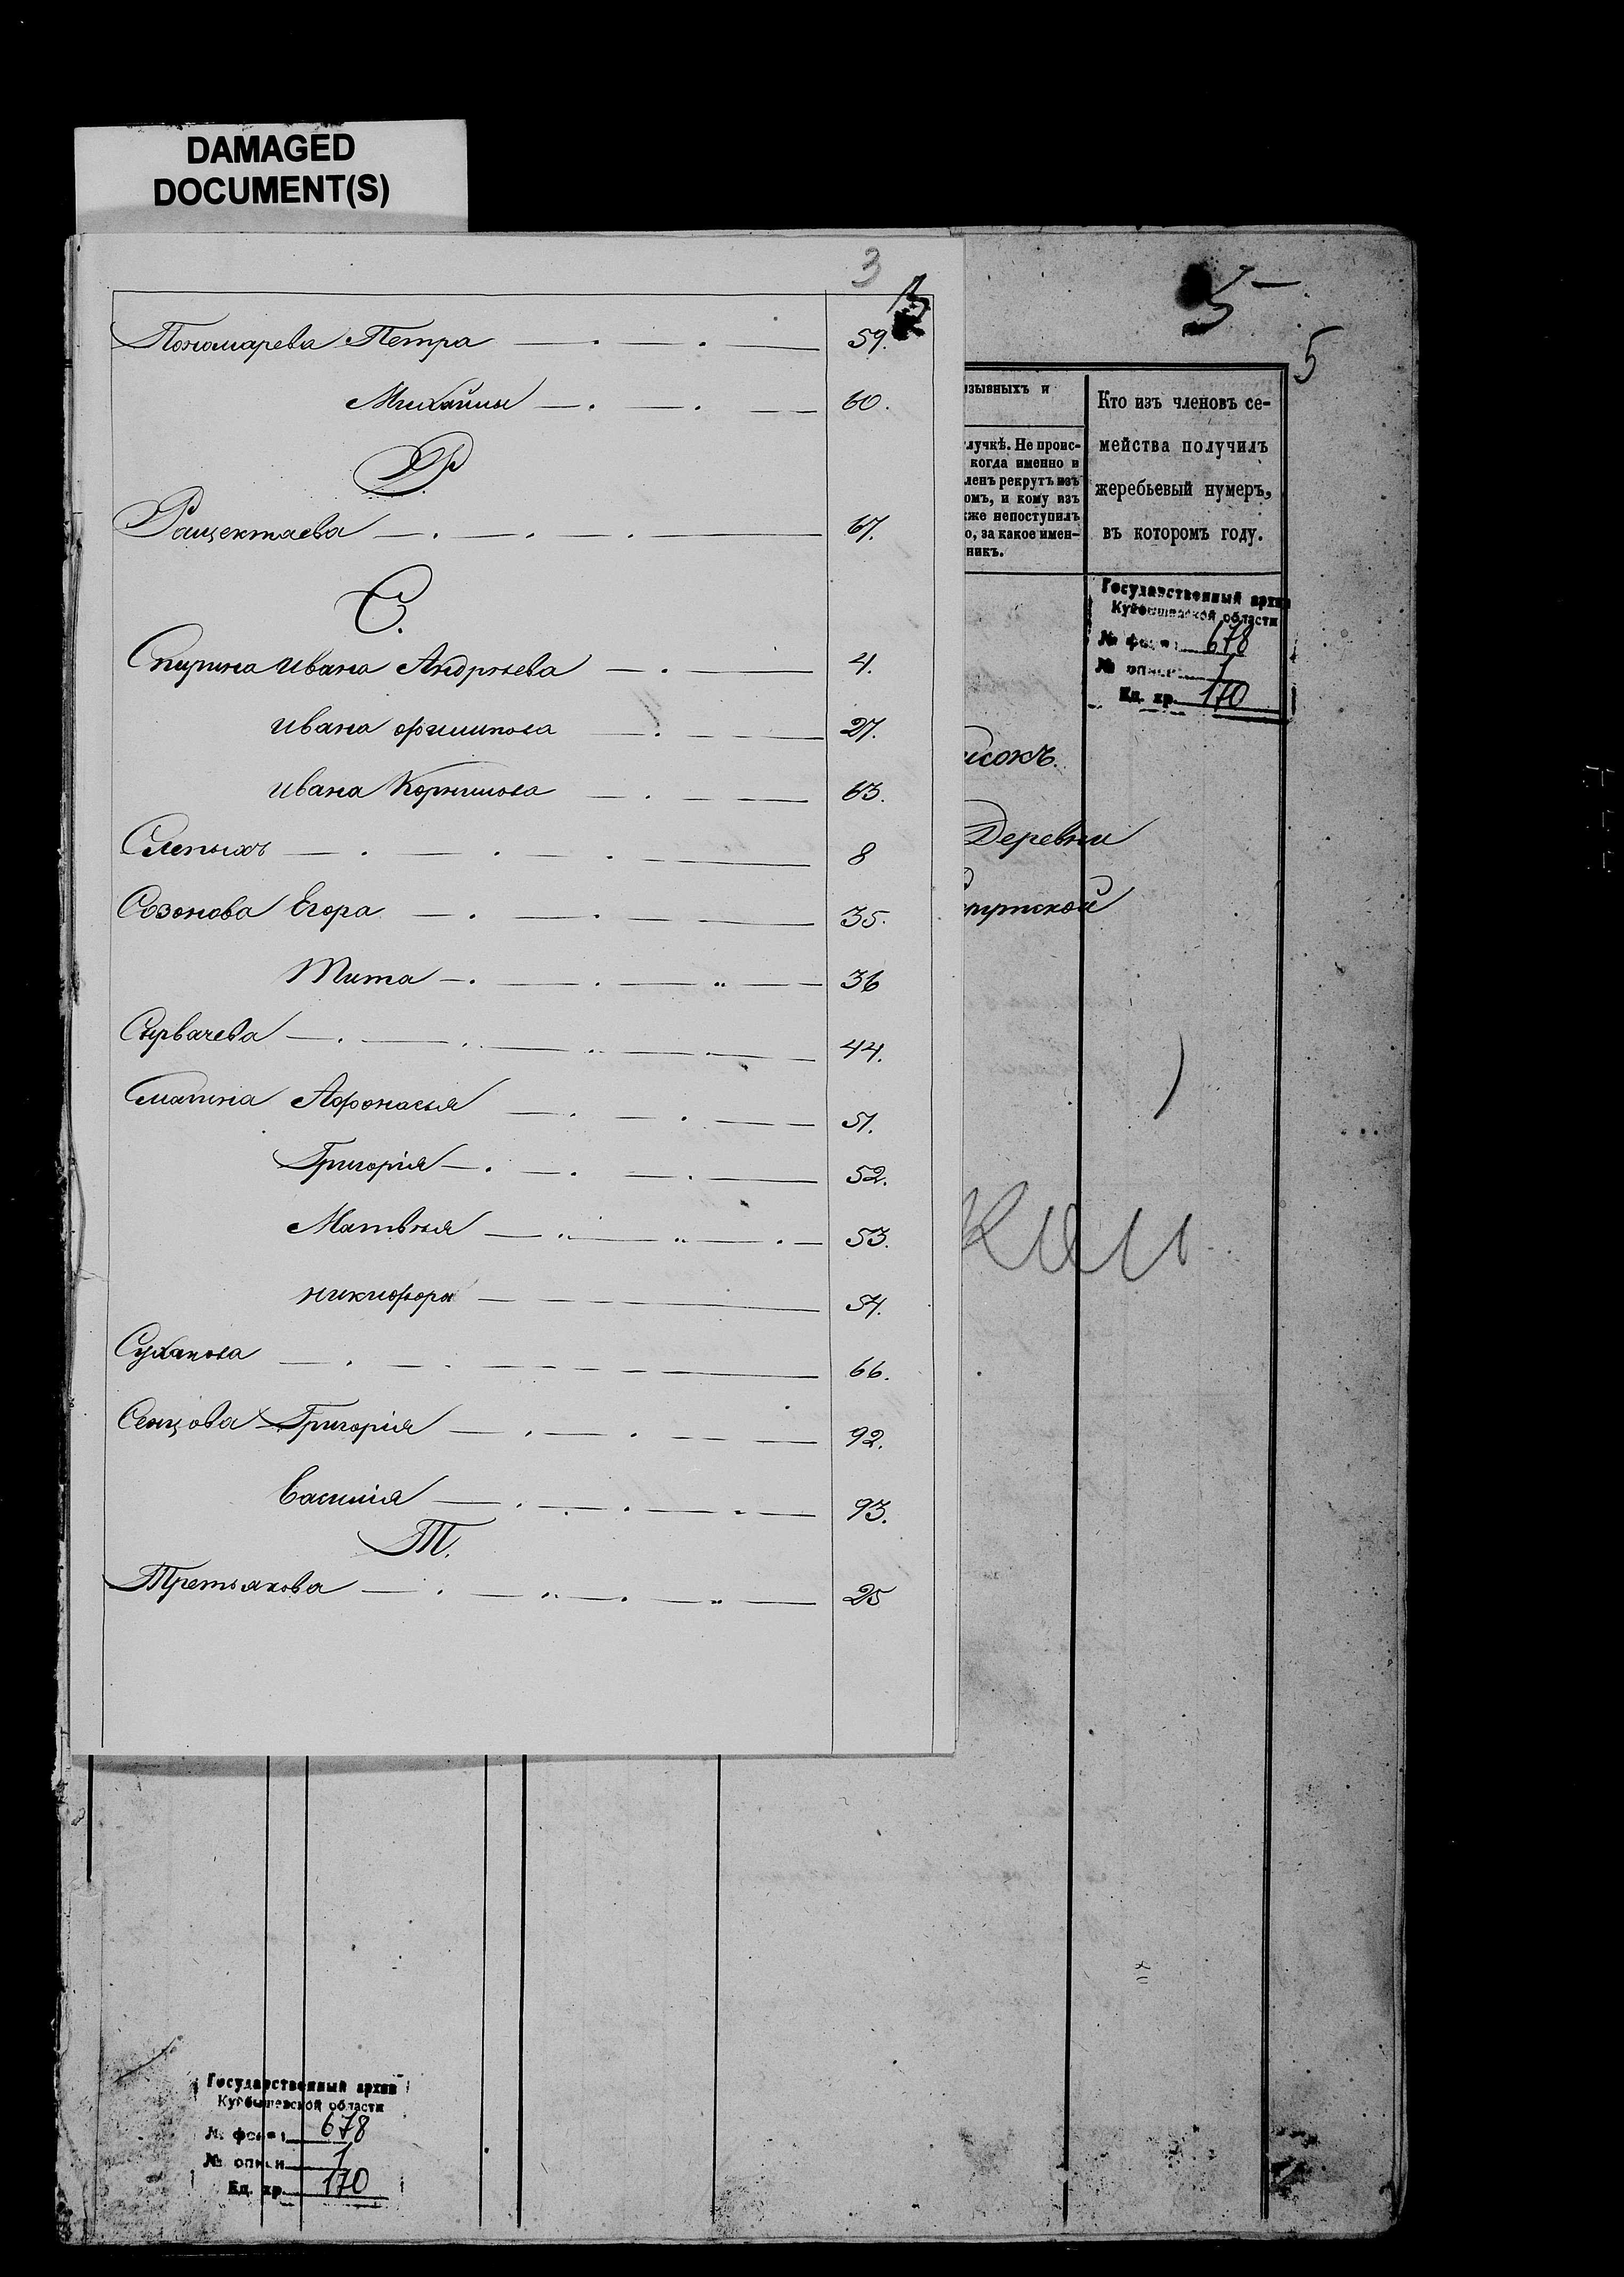 DAMAGED
DOCUMENT(S)
3
Пономарева Петра 59.
Михайлы 60.
Р.
Ращектаева 67.
С.
Спирина Ивана Андрѣева 4.
Ивана Филипова 27.
Ивана Корнилова 63.
Слепыхъ 8
Созонова Егора 35.
Тита 36
Сырвачева 44.
Смагина Афонасья 51.
Григорія 52.
Матвѣя 53.
Никифора 54.
Суханова 66.
Сенцова Григорія 92.
Василія 93.
Т.
Третьякова 25
5
5
изывныхъ и
лучкѣ. Не проис-
когда именно и
ленъ рекрутъ изъ
омъ, и кому изъ
кже непоступилъ
о, за какое имен-
никъ.
Кто изъ членовъ се-
мейства получилъ
жеребьевый нумеръ,
въ которомъ году.
Государственный архив
Куйбышевской области
№ фонда 678
№ описи 1
Ед. хр. 170
исокъ.
Деревни
Государственный архив
Куйбышевской области
№ фонда 678
№ описи 1
Ед. хр. 170